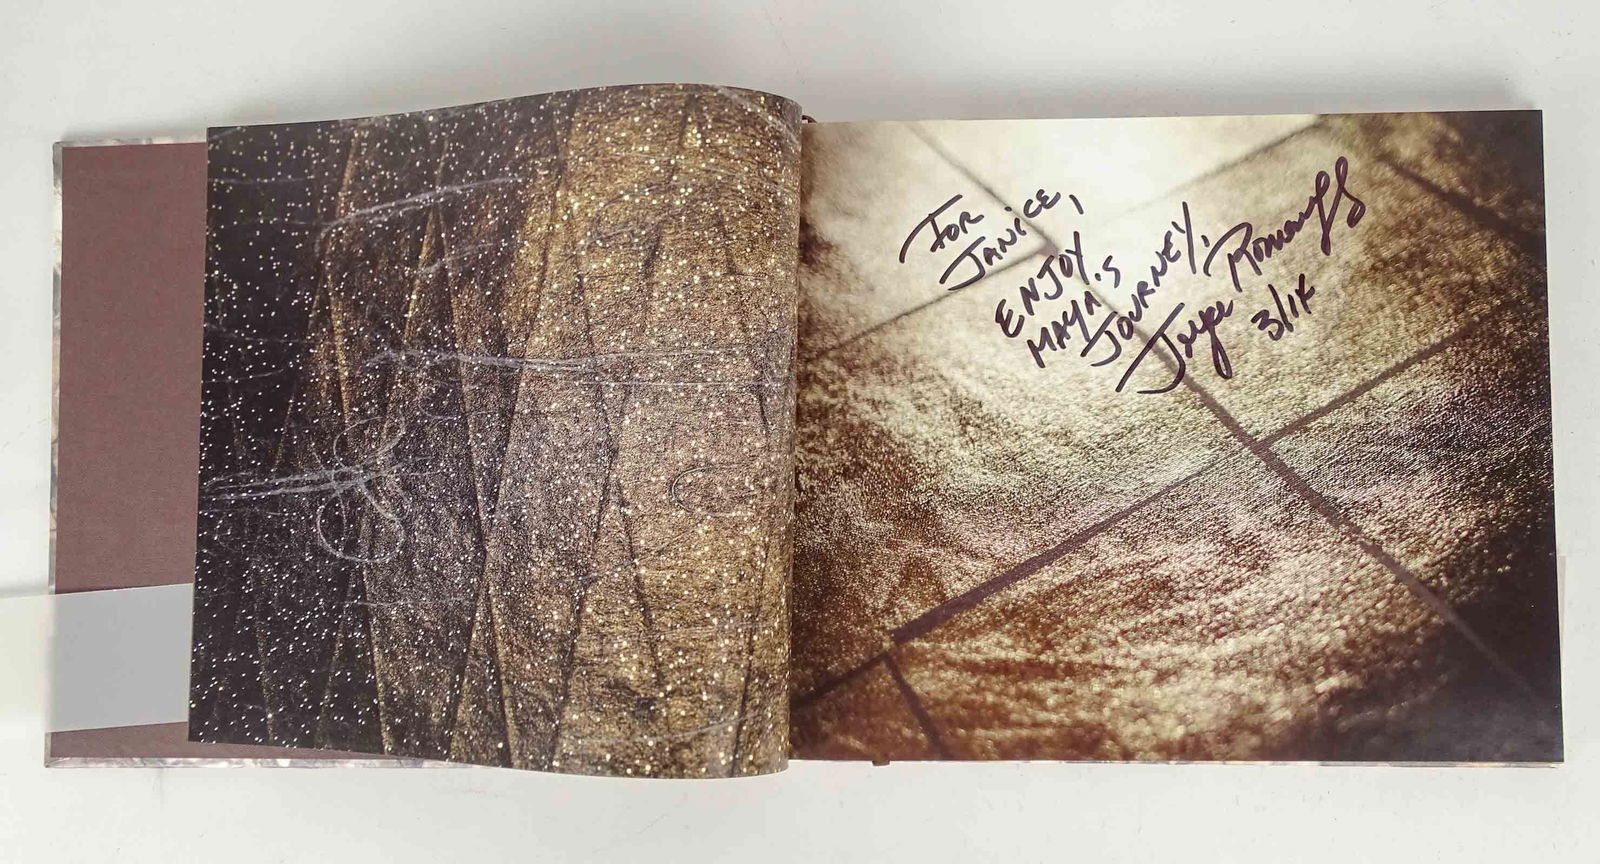 FOR
JANICE,
ENJOY
MAYA'S
JOURNEY,
Joyce Romanoff
3/14